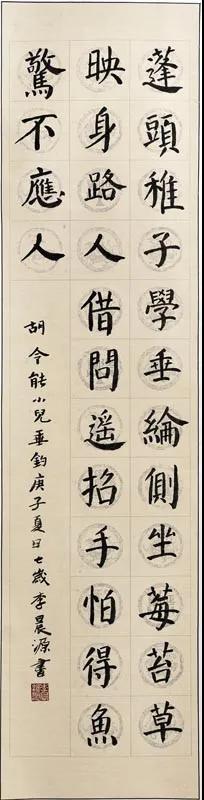 蓬頭稚子學垂綸側坐莓苔草
映身路人借問遥招手怕得魚
驚不應人
胡令能小兒垂釣庚子夏日七歲李晨源書